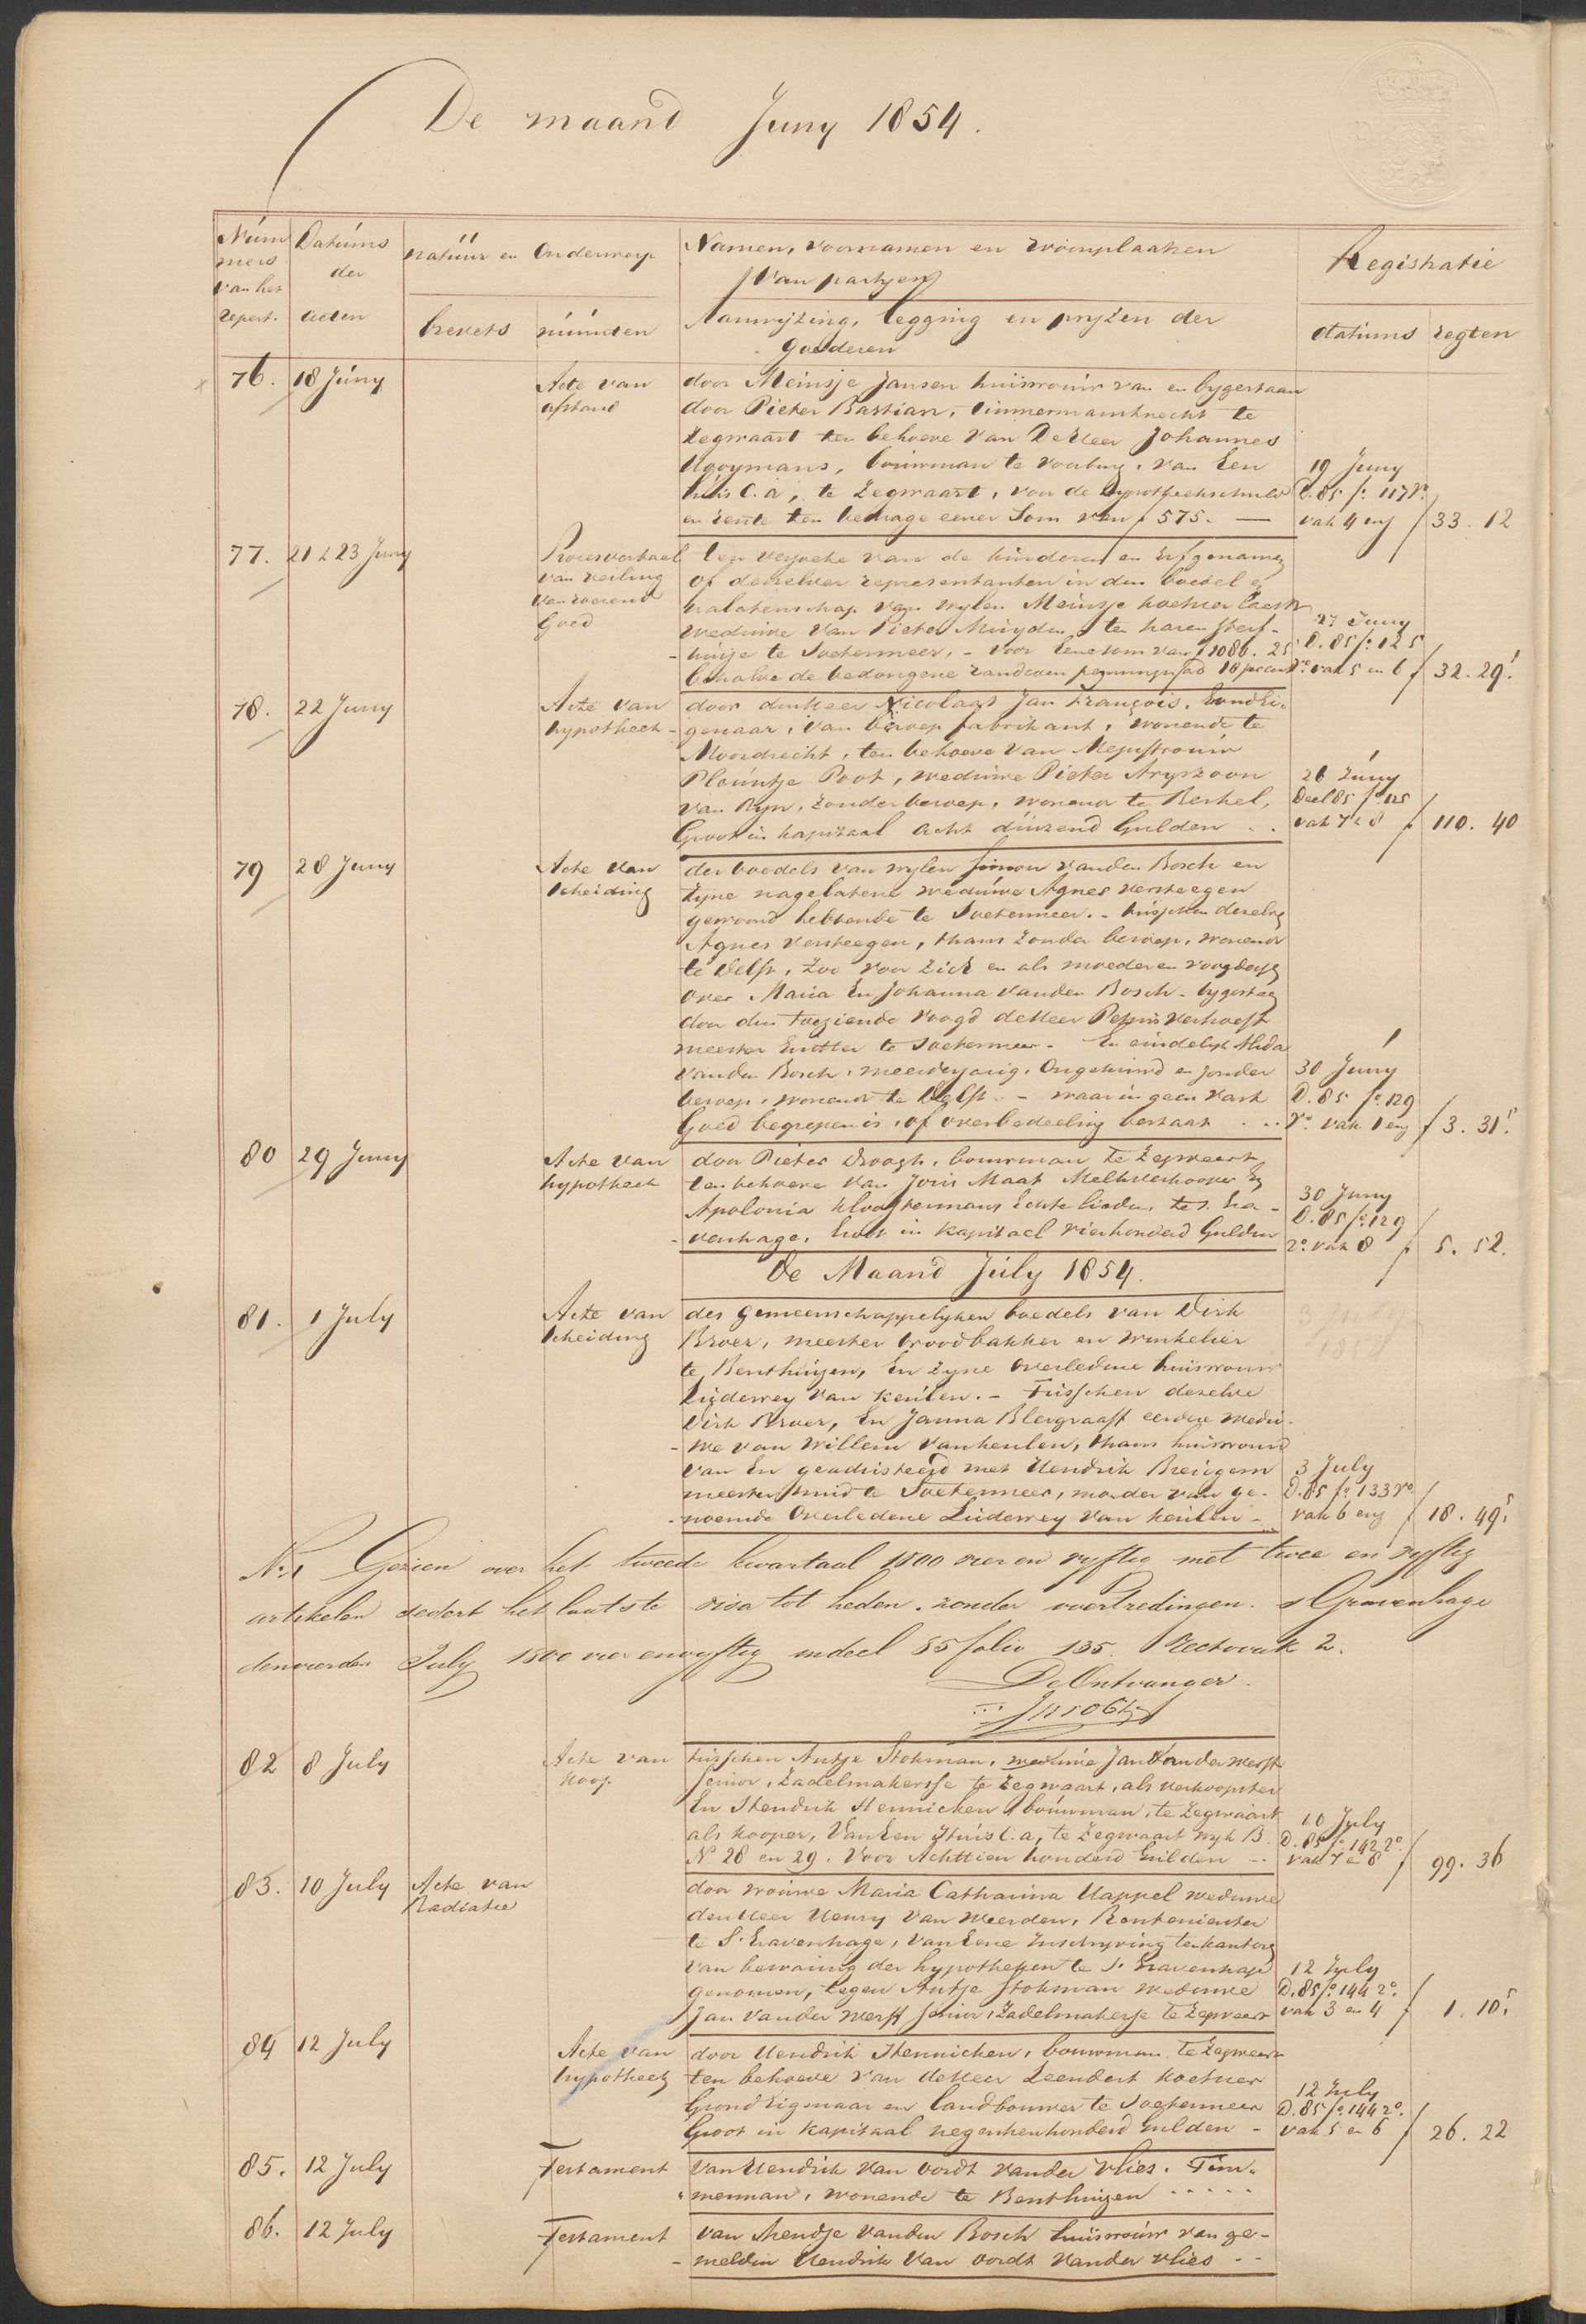 De maand Juny 1854.
Num
mers
van het
repert.
Datums
der
acten
natuur en Onderwerp
brevets
minuten
Namen, voornamen en woonplaatsen
van partyen
Aanwyzing, legging en pryzen der
goederen
Registratie
datums
regten
76. 18 Juny
Acte van
afstand
door Meinsje Jansen huisvrouw van en bygestaan
door Pieter Bastian, timmermansknecht te
Zegwaart ten behoeve van De Heer Johannes
Ugoymans, bouwman te voorburg, van Een
huis C.a, te Zegwaart, voor de Hypotheekschuld
en rente ten bedrage eener Som van ƒ 575. —
19 Juny
D. 85 fo. 117 Vo.
vak 4 enz ƒ 33. 12
77. 21 & 23 Juny
Procesverbaal
van veiling
van roerend
Goed
Ten verzoeke van de kinderen en Erfgenamen
of derzelver representanten in den boedel en
nalatenschap van wylen Meinsje koetser laatst
weduwe van Pieter Muyden, ten haren sterf-
-huize te Soetermeer, - voor Eene som van ƒ 1086. 25
behalve de bedongene randsoen penningen ad 10 procent
27 Juny
D. 85 fo. 125
Vo. vak 5 en 6 ƒ 32. 29.5
78. 22 Juny
Acte van
hypotheek
door den Heer Nicolaas Jan François, Grond Ei-
genaar, van beroep fabrikant, wonende te
Moordrecht, ten behoeve van Mejuffrouw
Pleuntje Poot, weduwe Pieter Aryszoon
van Ryn, zonder beroep, wonende te Berkel,
Groot in kapitaal acht duizend Gulden . .
26 Juny
Deel 85 fo. 125
vak 7 & 8 ƒ 110. 40
79 28 Juny
Acte van
scheiding
der boedels van wylen Simon vanden Bosch en
zyne nagelatene weduwe Agnes versteegen
gewoond hebbende te Soetermeer. - tusschen dezelve
Agnes versteegen, thans zonder beroep, wonende
te Delft, zoo voor Zich en als moeder en voogdesse
over Maria En Johanna vanden Bosch - bygestaan
door den toeziende voogd de Heer Verhoeff
meester te Soetermeer - En eindelyk Alida
vanden Bosch, meerderjarig, Ongehuwd en zonder
beroep, wonende te Delft. - waarin geen vast
Goed begrepen is, of overbedeeling bestaat . . .
30 Juny
D. 85 fo. 129
Vo. vak 1 enz ƒ 3. 31.5
80 29 Juny
Acte van
hypotheek
door Pieter Droogh, bouwman te Zegwaart,
ten behoeve van Joris Maat Melkverkooper En
Apolonia Kloostermans Echtelieden, te s. Gra-
-venhage, Groot in Kapitaal vierhonderd Gulden
30 Juny
D. 85 fo. 129
Vo. vak 8 ƒ 5. 52.
De Maand July 1854.
81. 1 July
Acte van
scheiding
des gemeenschappelyken boedels van Dirk
Broer, meester broodbakker en winkelier
te Benthuizen, En zyne overledene huisvrouw
Luiderwey van keulen. - Tusschen dezelve
Dirk Broer, En Janna Blevgraaff eerdere wedu-
-we van Willem van keulen, thans huisvrouw
van En geadsisteerd met Hendrik Breugem
meester smid te Soetermeer, moeder van ge-
-noemde Overledene Luiderwey van keulen -
3 July
1854
3 July
D. 85 fo. 133 Vo.
vak 6 enz ƒ 18. 49.5
No. 1 Gezien over het tweede kwartaal 1800 vier en vyftig met twee en vyftig
artikelen sedert het laatste visa tot heden. zonder overtredingen. s Gravenhage
den vierden July 1800 vier en vyftig in deel 85 folio 135. Recto vak 2.
De Ontvanger.
82 8 July
Acte van
koop
tusschen Antje Stokman, weduwe Jan Van der Werff
Senior, Zadelmakersse te Zegwaart, als verkoopster
En Hendrik Hennicken, bouwman, te Zegwaart
als kooper, Van Een Huis C.a, te Zegwaart wyk B.
No 28 en 29. Voor Achttien honderd Gulden - -
10 July
D. 85 fo. 142 Vo.
vak 7 en 8 ƒ 99. 36
83. 10 July Acte van
Radiatie
door vrouwe Maria Catharina Happel weduwe
den Heer Henry Van Weerden, Rentenierster
te S. Gravenhage, van Eene Inschryving ten kantore
van bewaring der hypotheken te S. Gravenhage
genomen, tegen Antje Stokman weduwe
Jan Vander Werff Senior, Zadelmakersse te Zegwaart
12 July
D. 85 fo. 144 Vo.
vak 3 en 4 ƒ 1. 10.5
84 12 July
Acte van
hypotheek
door Hendrik Hennicken, bouwman te Zegwaart
ten behoeve van de Heer Leendert koetser
Grond Eigenaar en landbouwer te Soetermeer
Groot in Kapitaal negentienhonderd Gulden -
12 July
D. 85 fo. 144 Vo.
vak 5 en 6 ƒ 26. 22
85. 12 July
Testament
Van Hendrik van oordt vander vlies. Tim-
-merman, wonende te Benthuizen . . . . .
86. 12 July
Testament
van Mendje vanden Bosch huisvrouw van ge-
-melden Hendrik van oordt vander vlies - -